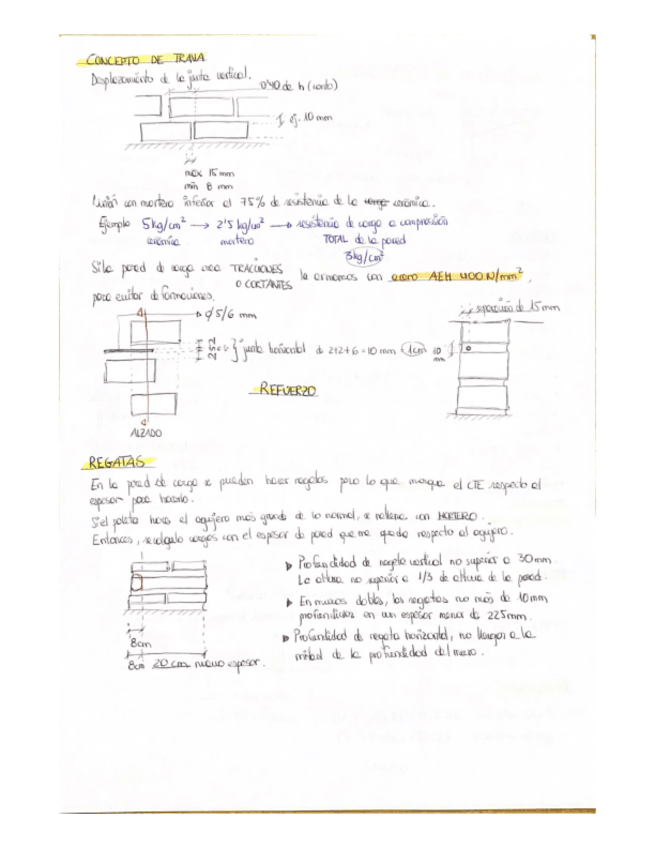 CONCEPTO DE TRAVA
Desplazamiento de la junta vertical.
0'40 de h (canto)
ej. 10 mm
max 15 mm
min 8 mm
con mortero inferior al 75% de resistencia de la cerámica.
Ejemplo 5kg/cm² → 2'5 kg/cm² → resistencia de carga a compresión
cerámica mortero TOTAL de la pared
3kg/cm²
Si la pared de carga crea TRACCIONES
O CORTANTES
la armamos con acero AEH 400N/mm²,
para evitar deformaciones.
separación de 15 mm
Ø 5/6 mm
junta horizontal de 2+2+6=10 mm 1cm 10
mm
REFUERZO
ALZADO
REGATAS
En la pared de carga se pueden hacer regatas para lo que marque el CTE respecto al
espesor para hacerlo.
Si el paleta hace el agujero más grande de lo normal, se rellena con MORTERO.
Entonces, recalculo cargas con el espesor de pared que me queda respecto al agujero.
Profundidad de regata vertical no superior a 30mm.
La altura no superior a 1/3 de altura de la pared.
En muros dobles, las regatas no más de 10mm
en un espesor menor de 225mm.
Profundidad de regata horizontal, no llegar a la
mitad de la profundidad del muro.
8cm
8cm 20 cm nuevo espesor.